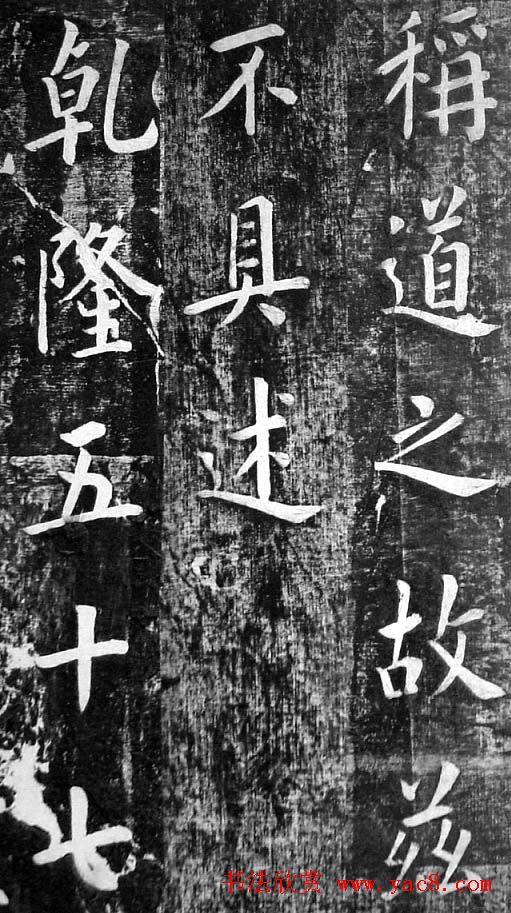 稱道之故茲
不具述
乾隆五十七
书法欣赏 www.yac8.com